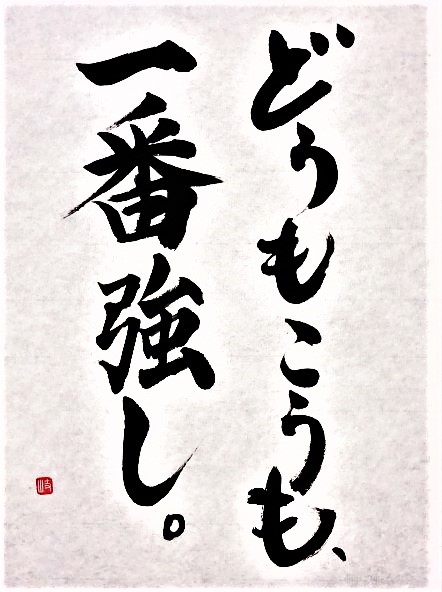 どうもこうも、
一番強し。
岐